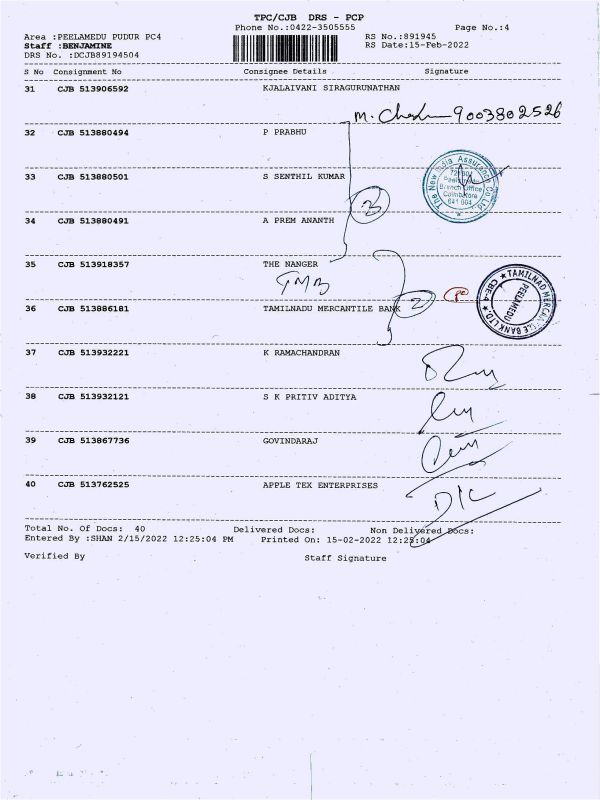 TPC/CJB DRS - PCP
Phone No.:0422-3505555
Page No.:4
Area :PEELAMEDU PUDUR PC4
RS No.:891945
Staff :BENJAMINE
RS Date:15-Feb-2022
DRS No. :DCJB89194504
S No Consignment No Consignee Details Signature
31 CJB 513906592 KJALAIVANI SIRAGURUNATHAN
9003802526
32 CJB 513880494 P PRABHU
33 CJB 513880501 S SENTHIL KUMAR
The New India Assurance Co Ltd
Branch Office
Coimbatore
641 004
3
34 CJB 513880491 A PREM ANANTH
35 CJB 513918357 THE NANGER
TMB
2
TAMILNAD MERCANTILE BANK LTD.
PEELAMEDU
CBE-4
36 CJB 513886181 TAMILNADU MERCANTILE BANK
37 CJB 513932221 K RAMACHANDRAN
38 CJB 513932121 S K PRITIV ADITYA
39 CJB 513867736 GOVINDARAJ
40 CJB 513762525 APPLE TEX ENTERPRISES
D/C
Total No. Of Docs: 40 Delivered Docs: Non Delivered Docs:
Entered By :SHAN 2/15/2022 12:25:04 PM Printed On: 15-02-2022 12:25:04
Verified By Staff Signature